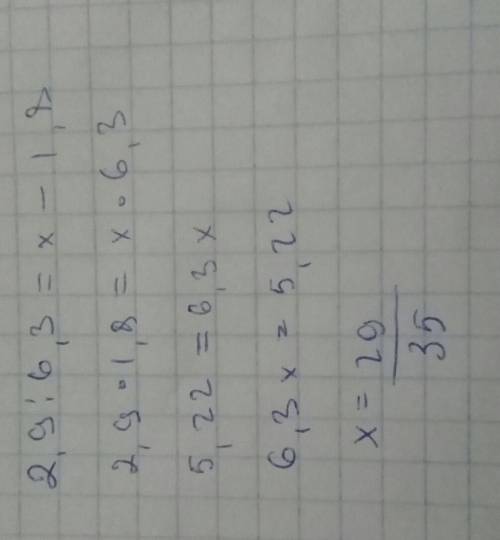 2,9 : 6,3 = x − 1,8
2,9 · 1,8 = x · 6,3
5,22 = 6,3 x
6,3 x = 5,22
x = 29/35